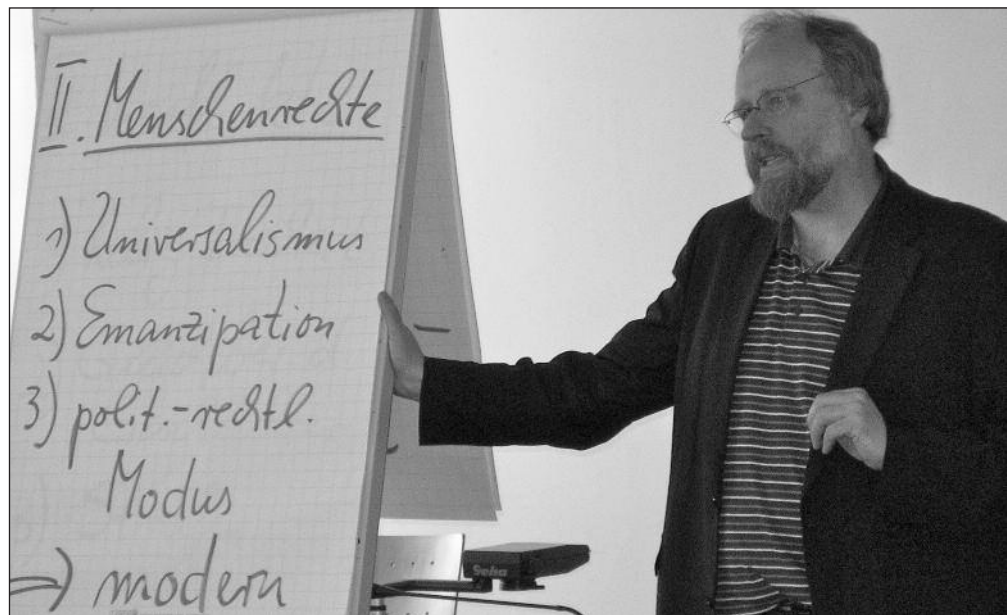 II. Menschenrechte
1) Universalismus
2) Emanzipation
3) polit.-rechtl.
Modus
→ modern
Geha